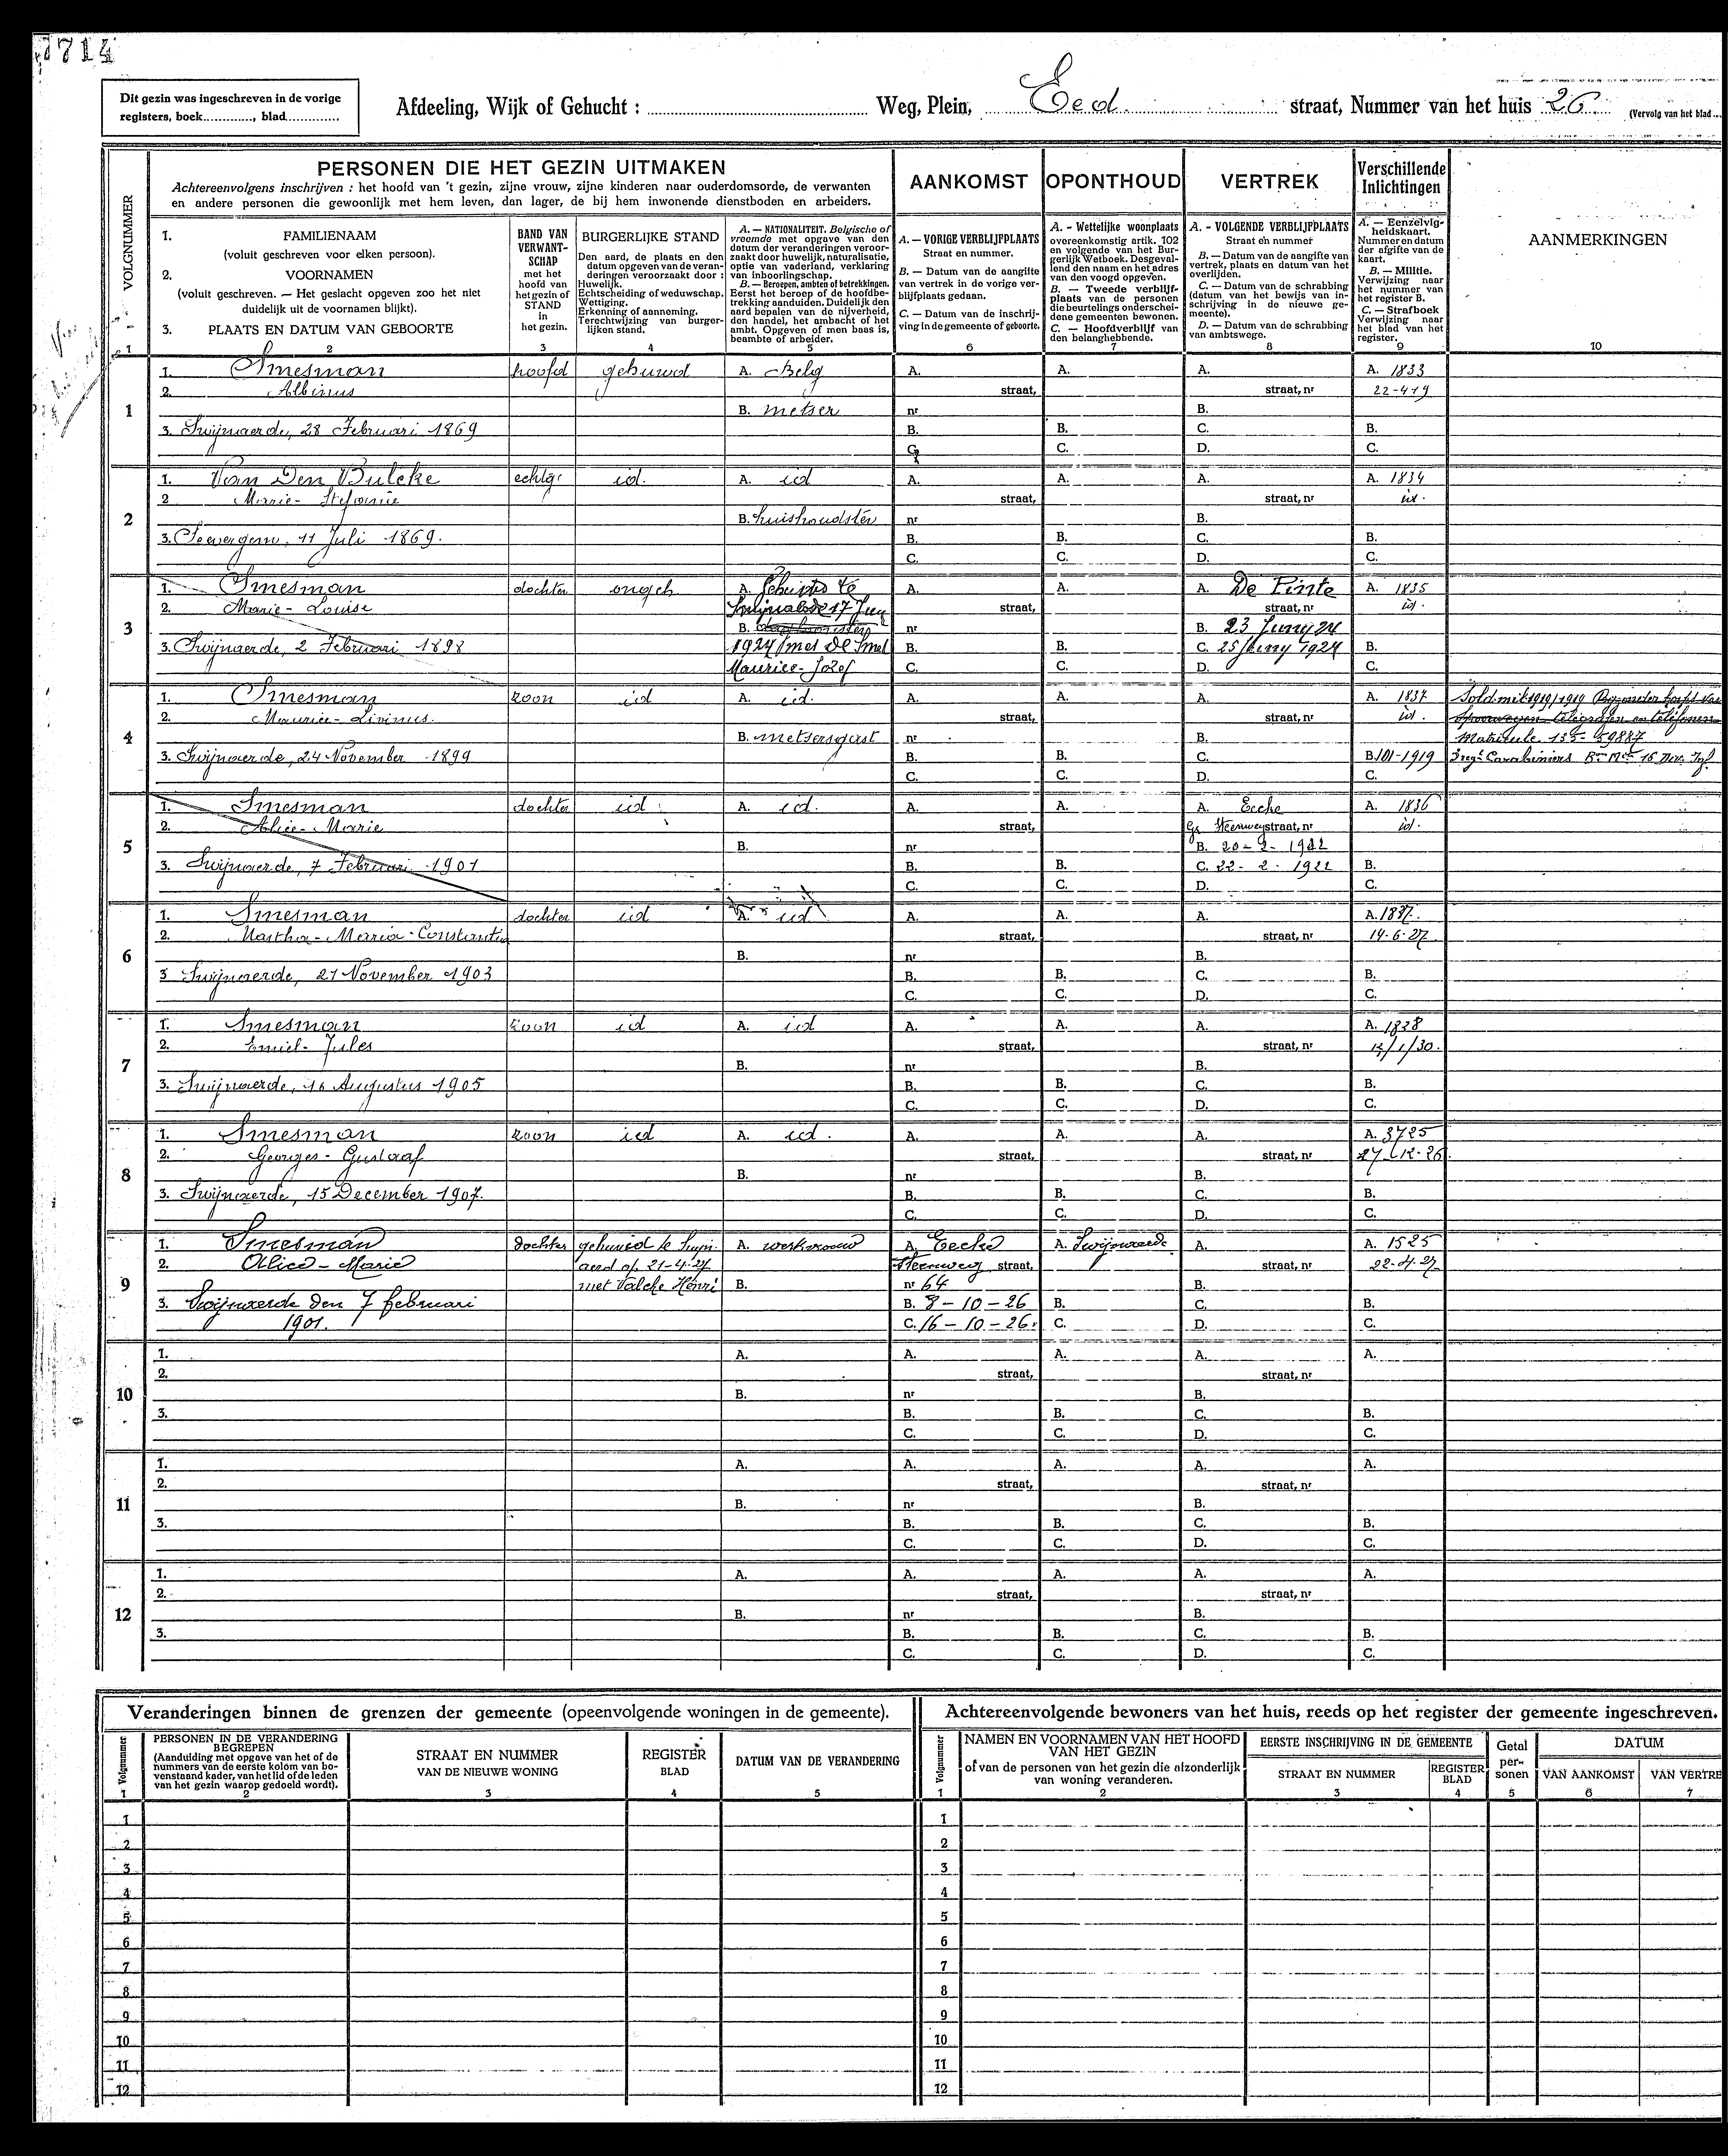 7714
Dit gezin was ingeschreven in de vorige
registers, boek............, blad.............
Afdeeling, Wijk of Gehucht : .......... Weg, Plein, Eed straat, Nummer van het huis 26 (Vervolg van het blad ...
VOLGNUMMER
PERSONEN DIE HET GEZIN UITMAKEN
Achtereenvolgens inschrijven : het hoofd van 't gezin, zijne vrouw, zijne kinderen naar ouderdomsorde, de verwanten
en andere personen die gewoonlijk met hem leven, dan lager, de bij hem inwonende dienstboden en arbeiders.
1. FAMILIENAAM
(voluit geschreven voor elken persoon).
2. VOORNAMEN
(voluit geschreven. — Het geslacht opgeven zoo het niet
duidelijk uit de voornamen blijkt).
3. PLAATS EN DATUM VAN GEBOORTE
BAND VAN
VERWANT-
SCHAP
met het
hoofd van
het gezin of
STAND
in
het gezin.
BURGERLIJKE STAND
Den aard, de plaats en den
datum opgeven van de veran-
deringen veroorzaakt door :
Huwelijk.
Echtscheiding of weduwschap.
Wettiging.
Erkenning of aanneming.
Terechtwijzing van burger-
lijken stand.
A. — NATIONALITEIT. Belgische of
vreemde met opgave van den
datum der veranderingen veroor-
zaakt door huwelijk, naturalisatie,
optie van vaderland, verklaring
van inboorlingschap.
B. — Beroepen, ambten of betrekkingen.
Eerst het beroep of de hoofdbe-
trekking aanduiden. Duidelijk den
aard bepalen van de nijverheid,
den handel, het ambacht of het
ambt. Opgeven of men baas is,
beambte of arbeider.
AANKOMST
A. — VORIGE VERBLIJFPLAATS
Straat en nummer.
B. — Datum van de aangifte
van vertrek in de vorige ver-
blijfplaats gedaan.
C. — Datum van de inschrij-
ving in de gemeente of geboorte.
OPONTHOUD
A. - Wettelijke woonplaats
overeenkomstig artik. 102
en volgende van het Bur-
gerlijk Wetboek. Desgeval-
lend den naam en het adres
van den voogd opgeven.
B. — Tweede verblijf-
plaats van de personen
die beurtelings onderschei-
dene gemeenten bewonen.
C. — Hoofdverblijf van
den belanghebbende.
VERTREK
A. - VOLGENDE VERBLIJFPLAATS
Straat en nummer
B. — Datum van de aangifte van
vertrek, plaats en datum van het
overlijden.
C. — Datum van de schrabbing
(datum van het bewijs van in-
schrijving in de nieuwe ge-
meente).
D. — Datum van de schrabbing
van ambtswege.
Verschillende
Inlichtingen
A. — Eenzelvig-
heidskaart.
Nummer en datum
der afgifte van de
kaart.
B. — Militie.
Verwijzing naar
het nummer van
het register B.
C. — Strafboek
Verwijzing naar
het blad van het
register.
AANMERKINGEN
1 2 3 4 5 6 7 8 9 10
1. Smesman hoofd gehuwd A. Belg A. A. A. A. 1833
2. Albinus straat, straat, nr 22-4-19
1 B. metser nr B.
3. Swijnaerde, 28 Februari 1869 B. B. C. B.
C. C. D. C.
1. Van Den Bulcke echtg. id. A. id A. A. A. A. 1834
2 Marie- Stefanie straat, straat, nr id.
2 B. huishoudster nr B.
3. Seevergem, 11 Juli 1869. B. B. C. B.
C. C. D. C.
1. Smesman dochter ongeh A. Gehuwd te A. A. A. De Pinte A. 1835
2. Marie- Louise Swijnaerde 17 Juny straat, straat, nr id.
3 B. nr B. 23 Juny 24
3. Swijnaerde, 2 Februari 1898 1924 met De Smet B. B. C. 25 Juny 1924 B.
Maurice-Jozef C. C. D. C.
1. Smesman zoon id A. id. A. A. A. A. 1837 Sold. mil 1919/1919
2. Maurice- Livinus. straat, straat, nr id. spoorwegen telegrafen en telefonen
4 B. metsersgast nr B. Matricule 135-59887
3. Swijnaerde, 24 November 1899 B. B. C. B. 101-1919 3 reg. Carabiniers
C. C. D. C.
1. Smesman dochter id A. id. A. A. A. Eecke A. 1836
2. Alice- Marie straat, Steenweg straat, nr id.
5 B. nr B. 20-2-1922
3. Swijnaerde, 7 Februari 1901 B. B. C. 22-2-1922 B.
C. C. D. C.
1. Smesman dochter id A. id A. A. A. A. 1837.
2. Martha- Maria- Constantia straat, straat, nr 14-6-27
6 B. nr B.
3 Swijnaerde, 21 November 1903 B. B. C. B.
C. C. D. C.
1. Smesman zoon id A. id A. A. A. A. 1838
2. Emiel- Jules straat, straat, nr 13/1/30.
7 B. nr B.
3. Swijnaerde, 16 Augustus 1905 B. B. C. B.
C. C. D. C.
1. Smesman zoon id A. id. A. A. A. A. 3725
2. Georges- Gustaaf straat, straat, nr 27-12-26
8 B. nr B.
3. Swijnaerde, 15 December 1907. B. B. C. B.
C. C. D. C.
1. Smesman dochter gehuwd te Swijn- A. werkvrouw A. Eecke A. Swijnaerde A. A. 1525
2. Alice- Marie aerd op 21-4-27 Steenweg straat, straat, nr 22-4-27
9 met Valcke Henri B. nr 64 B.
3. Swijnaerde den 7 februari B. 8-10-26 B. C. B.
1901. C. 16-10-26. C. D. C.
1. A. A. A. A. A.
2. straat, straat, nr
10 B. nr B.
3. B. B. C. B.
C. C. D. C.
1. A. A. A. A. A.
2. straat, straat, nr
11 B. nr B.
3. B. B. C. B.
C. C. D. C.
1. A. A. A. A. A.
2. straat, straat, nr
12 B. nr B.
3. B. B. C. B.
C. C. D. C.
Veranderingen binnen de grenzen der gemeente (opeenvolgende woningen in de gemeente).
Volgnummer
PERSONEN IN DE VERANDERING
BEGREPEN
(Aanduiding met opgave van het of de
nummers van de eerste kolom van bo-
venstaand kader, van het lid of de leden
van het gezin waarop gedoeld wordt).
STRAAT EN NUMMER
VAN DE NIEUWE WONING
REGISTER
BLAD
DATUM VAN DE VERANDERING
1 2 3 4 5
1
2
3
4
5
6
7
8
9
10
11
12
Achtereenvolgende bewoners van het huis, reeds op het register der gemeente ingeschreven.
Volgnummer
NAMEN EN VOORNAMEN VAN HET HOOFD
VAN HET GEZIN
of van de personen van het gezin die afzonderlijk
van woning veranderen.
EERSTE INSCHRIJVING IN DE GEMEENTE
STRAAT EN NUMMER
REGISTER
BLAD
Getal
per-
sonen
DATUM
VAN AANKOMST VAN VERTRE
1 2 3 4 5 6 7
1
2
3
4
5
6
7
8
9
10
11
12